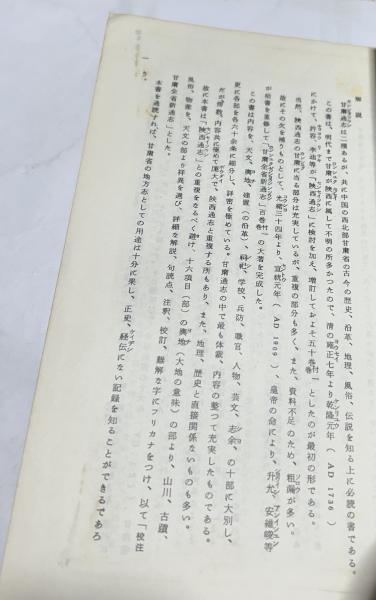 解説
甘粛通志は二種あるが、共に中国の西北部甘粛省の古今の歴史、沿革、地理、風俗、伝説を知る上に必読の書である。
この書は、明代まで甘粛が陝西に属して不明の所多かつたので、清の雍正七年より乾隆元年（AD1736）
にかけて、許容、李迪等が「陝西通志」に検討を加え、増訂しておよそ五十巻巻付一としたのが最初の形である。
当然、陝西通志の甘粛に当る部分は充実しているが、重複の部分も多く、また、資料不足のため、粗漏が多い。
故にその欠を補うものとして、光緒三十四年より、宣統元年（AD1909）、皇帝の命により、升允、安維峻等
が前書を重修して「甘粛全省新通志」百巻巻付一の大著を完成した。
この書は内容を、天文、輿地、建置（の沿革）、祠祀、学校、兵防、職官、人物、芸文、志余、の十部に大別し、
更に各部を各六十余条に細分し、詳密を極めている。甘粛通志の中で最も体裁、内容の整つて充実したものである。
だが冊数、内容共に極めて厖大で、陝西通志と重複する所もあり、また、地理、歴史と直接関係ないものも多い。
故に本書は「陝西通志」との重複をなるべく避け、十六項目（部）の輿地（大地の意味）の部より、山川、古蹟、
風俗、物産を、天文の部より祥異を選び、詳細な解説、句読点、注釈、校訂、難解な字にフリカナをつけ、以て「校注
甘粛全省新通志」とした。
本書を通読すれば、甘粛省の地方志としての用途は十分に果し、正史、経伝にない記録を知ることができるであろ
う。